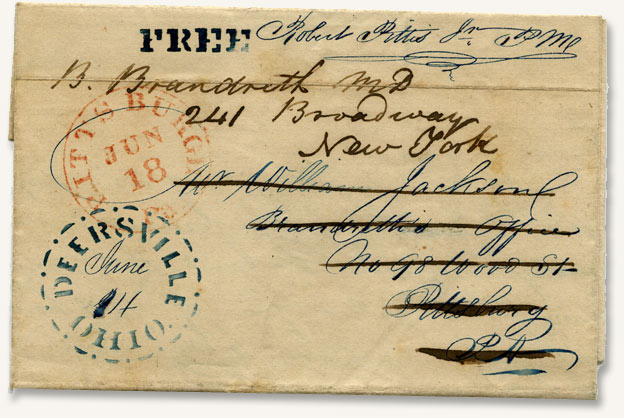 FREE Robert Pittis Jr. P.M.
B. Brandreth MD
241 Broadway
New York
PITTSBURGH
JUN
18
Mr William Jackson
Brandreth's Office
No 98 Wood St
Pittsburg
PA
DEERSVILLE
June
14
OHIO